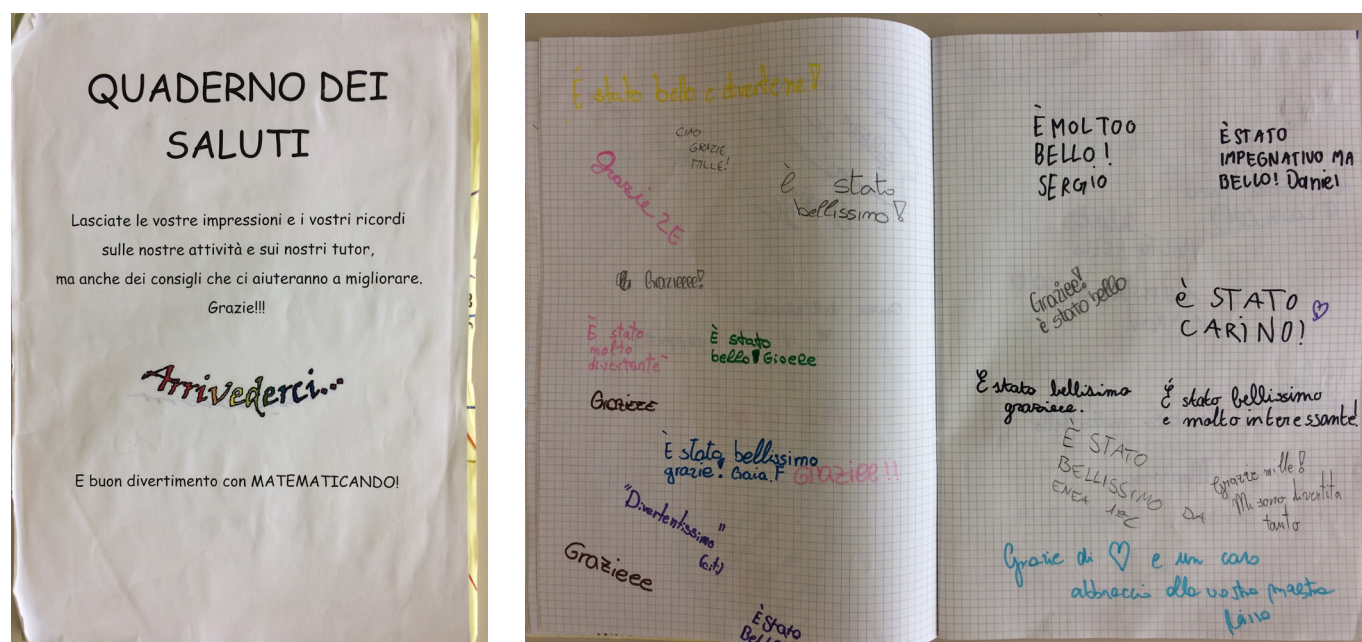 QUADERNO DEI
SALUTI
Lasciate le vostre impressioni e i vostri ricordi
sulle nostre attività e sui nostri tutor,
ma anche dei consigli che ci aiuteranno a migliorare.
Grazie!!!
Arrivederci...
E buon divertimento con MATEMATICANDO!
È stato bello e
CIAO
GRAZIE
MILLE!
Grazie 2E
è stato
bellissimo!
Grazieeee!
È stato
molto
divertente
È stato
bello! Gioele
GRAZIEEE
È stato bellissimo
grazie! Gaia.F
Graziee!!
"Divertentissimo"
(cit)
Grazieee
È Stato
È MOLTOO
BELLO!
SERGIO
È STATO
IMPEGNATIVO MA
BELLO! Daniel
Graziee!
è stato bello
è STATO
CARINO!
È stato bellisimo
grazieee.
É stato bellissimo
e molto interessante!
È STATO
BELLISSIMO
ENEA
Grazie mille!
Mi sono divertita
tanto
Grazie di ♡ e un caro
abbraccio alla vostra maestra